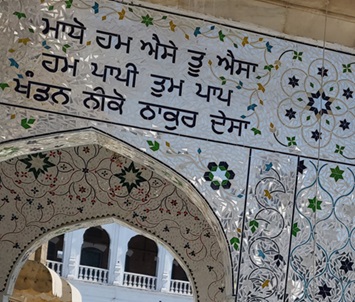 ਮਾਧੋ ਹਮ ਐਸੇ ਤੂ ਐਸਾ
ਹਮ ਪਾਪੀ ਤੁਮ ਪਾਪ
ਖੰਡਨ ਨੀਕੋ ਠਾਕੁਰ ਦੇਸਾ